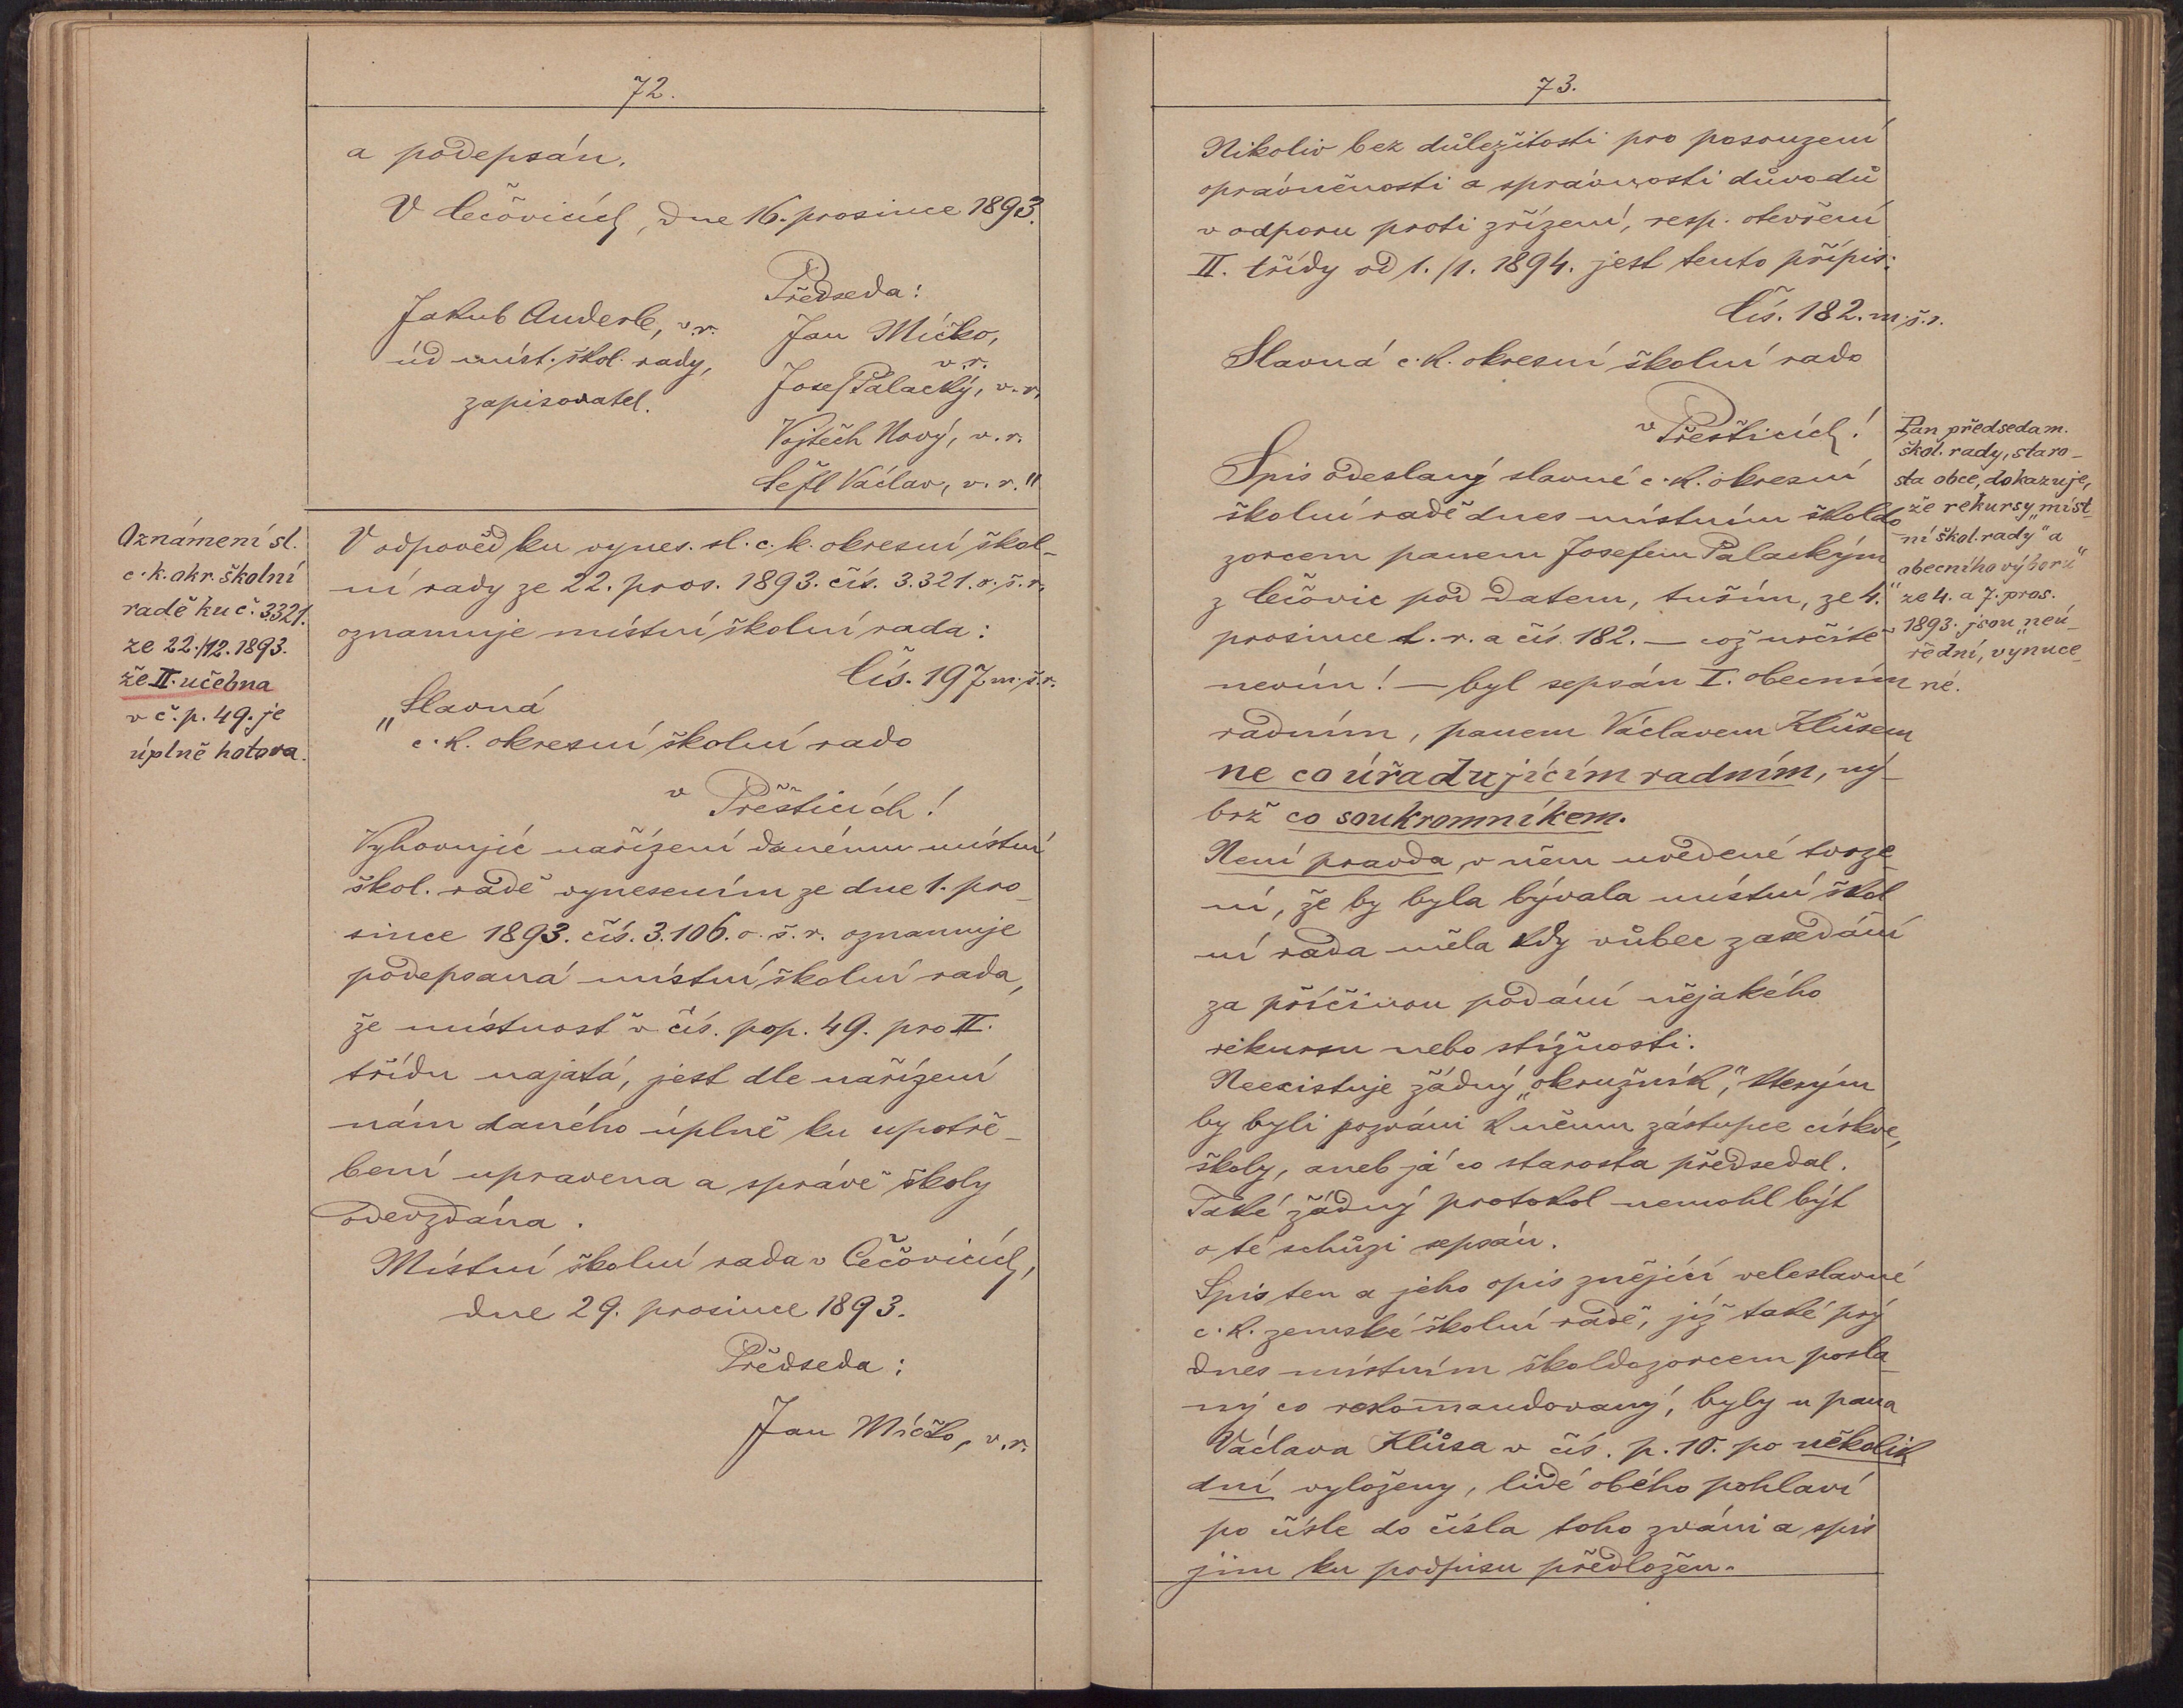 72.
a podepsán.
V Čečovicích, dne 16. prosince 1893.
Předseda:
Jakub Anderle, v. r.
úd míst. škol. rady,
zapisovatel.
Jan Míčko,
v. r.
Josef Palacký, v. r.
Vojtěch Nový, v. r.
Šefl Václav, v. r."
Oznámení sl.
c. k. okr. školní
radě ku č. 3321.
ze 22./12. 1893.
že II. učebna
v č. p. 49. je
úplně hotova.
V odpověď ku vynes. sl. c. k. okresní škol-
ní rady ze 22. pros. 1893. čís. 3.321. o. š. r.
oznamuje místní školní rada:
Čís. 197 m. š. r.
"Slavná
c. k. okresní školní rado
v Přešticích!
Vyhovujíc nařízení danému místní
škol. radě vynesením ze dne 1. pro-
since 1893. čís. 3.106. o. š. r. oznamuje
podepsaná místní školní rada,
že místnost v čís. pop. 49. pro II.
třídu najatá, jest dle nařízení
nám daného úplně ku upotře-
bení upravena a správě školy
odevzdána.
Místní školní rada v Čečovicích,
dne 29. prosince 1893.
Předseda:
Jan Míčko, v. r.
73.
Nikoliv bez důležitosti pro posouzení
oprávněnosti a správnosti důvodů
v odporu proti zřízení, resp. otevření
II. třídy od 1./1. 1894. jest tento přípis:
Čís. 182. m. š. r.
Slavná c. k. okresní školní rado
v Přešticích!
Spis odeslaný slavné c. k. okresní
školní radě dnes místním školdo
zorcem panem Josefem Palackým
z Čečovic pod datem, tuším, ze 4.
prosince t. r. a čís. 182. — což určitě
nevím! — byl sepsán I. obecním
radním, panem Václavem Klůsem
ne co úřadujícím radním, ný-
brž co soukromníkem.
Není pravda, v něm uvedené tvrze-
ní, že by byla bývala místní škol
ní rada měla kdy vůbec zasedání
za příčinou podání nějakého
rekursu nebo stížnosti.
Neexistuje žádný „okružník", kterým
by byli pozváni k němu zástupce církve,
školy, aneb já co starosta předsedal.
Také žádný protokol nemohl být
o té schůzi sepsán.
Spis ten a jeho opis znějící veleslavné
c. k. zemské školní radě, jíž také prý
dnes místním školdozorcem posla-
ný co rekomandovaný, byly u pana
Václava Klůsa v čís. p. 10. po několik
dní vyloženy, lidé obého pohlaví
po čísle do čísla toho zváni a spis
jim ku podpisu předložen.
Pan předseda m.
škol. rady, staro-
sta obce, dokazuje,
že rekursy „míst-
ní škol. rady" a
„obecního výboru"
ze 4. a 7. pros.
1893. jsou „neú-
řední, vynuce-
né.